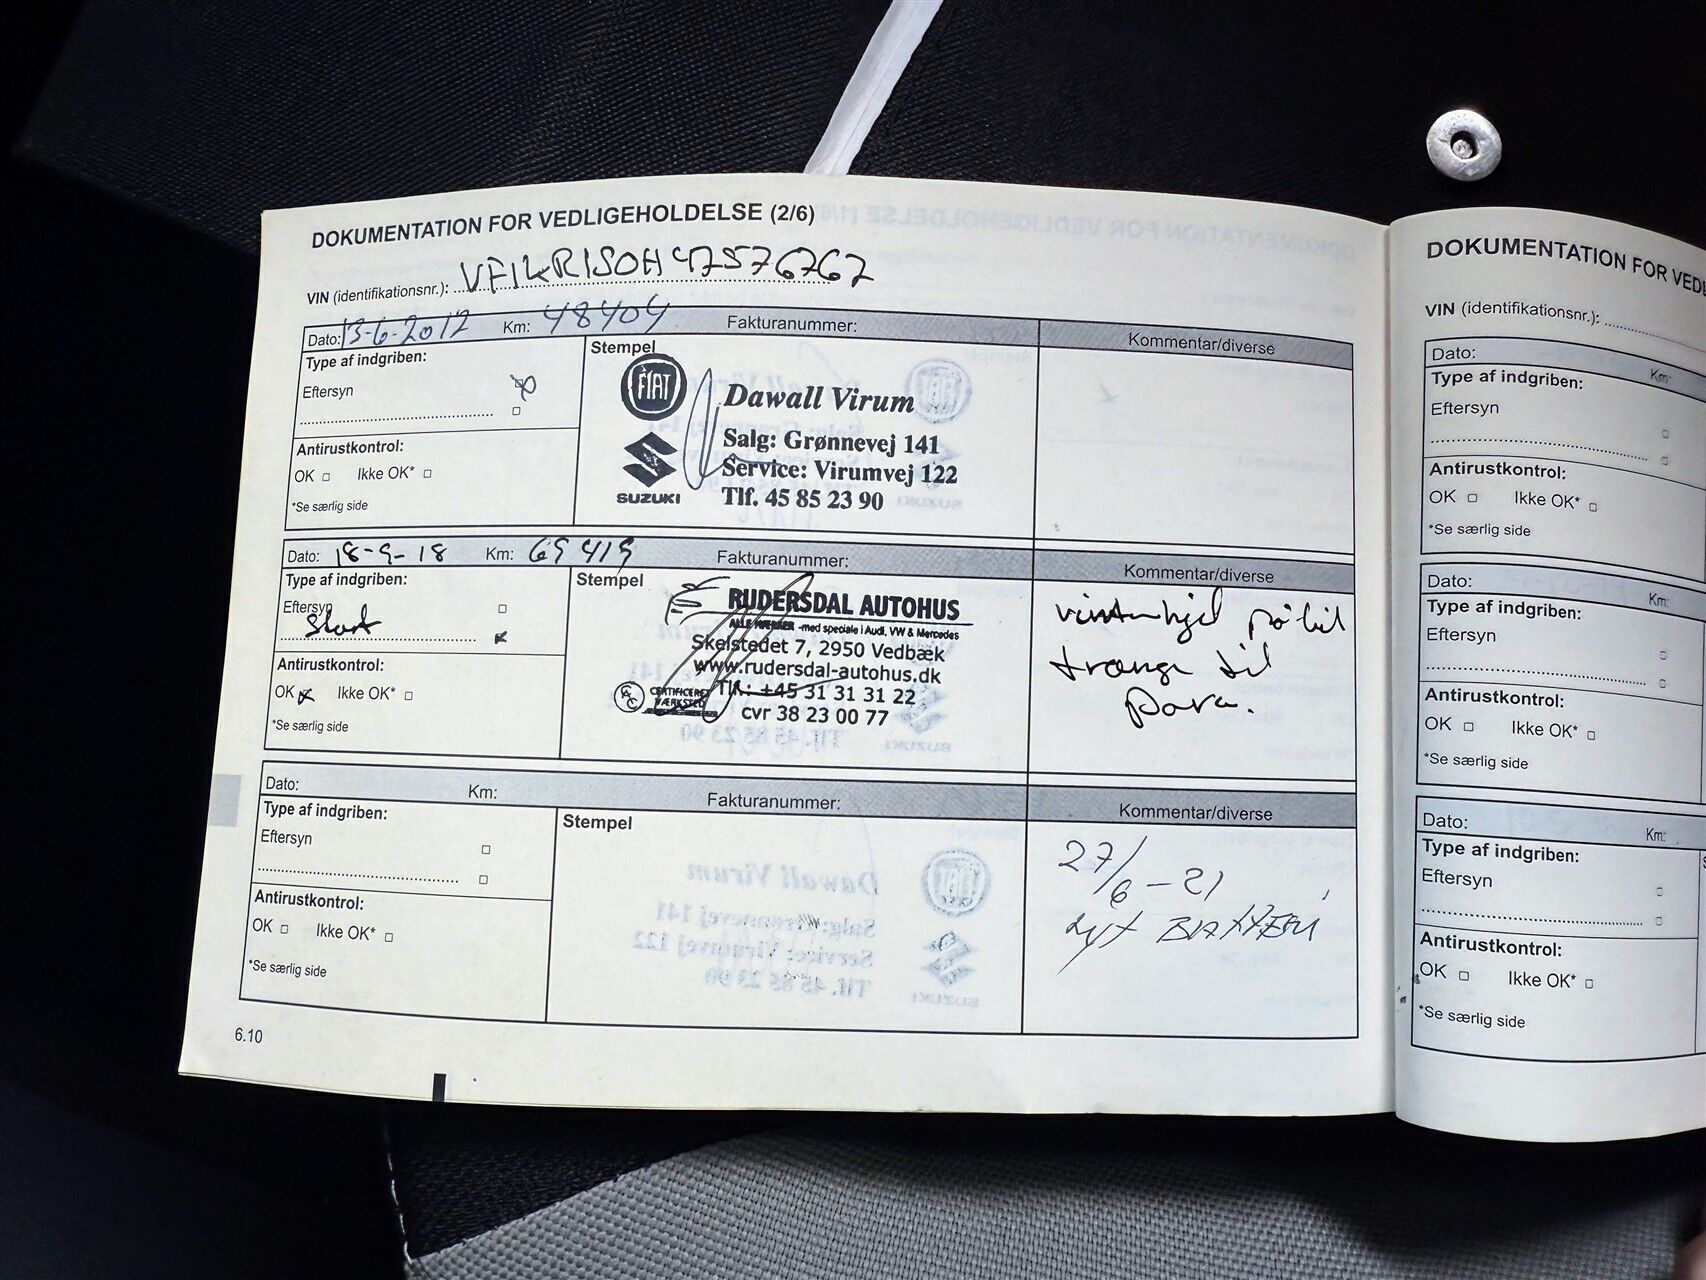 DOKUMENTATION FOR VEDLIGEHOLDELSE (2/6)
VIN (identifikationsnr.):
Dato: 13-6-2012 Km: 48404 Fakturanummer: Kommentar/diverse
Type af indgriben:
Eftersyn
Antirustkontrol:
OK Ikke OK*
*Se særlig side
Stempel
FIAT
SUZUKI
Dawall Virum
Salg: Grønnevej 141
Service: Virumvej 122
Tlf. 45 85 23 90
Dato: 18-9-18 Km: 69419 Fakturanummer: Kommentar/diverse
Type af indgriben:
Eftersyn
Stort
Antirustkontrol:
OK Ikke OK*
*Se særlig side
Stempel
RUDERSDAL AUTOHUS
ALLE MÆRKER -med speciale i Audi, VW & Mercedes
Skelstedet 7, 2950 Vedbæk
www.rudersdal-autohus.dk
Tlf.: +45 31 31 31 22
cvr 38 23 00 77
CERTIFICERET
VÆRKSTED
vinterhjul på bil
trænge til
Dato: Km: Fakturanummer: Kommentar/diverse
Type af indgriben:
Eftersyn
Antirustkontrol:
OK Ikke OK*
*Se særlig side
Stempel
27/6-21
nyt BATTERI
6.10
DOKUMENTATION FOR
VIN (identifikationsnr.):
Dato: Km:
Type af indgriben:
Eftersyn
Antirustkontrol:
OK Ikke OK*
*Se særlig side
Dato: Km:
Type af indgriben:
Eftersyn
Antirustkontrol:
OK Ikke OK*
*Se særlig side
Dato: Km:
Type af indgriben:
Eftersyn
Antirustkontrol:
OK Ikke OK*
*Se særlig side